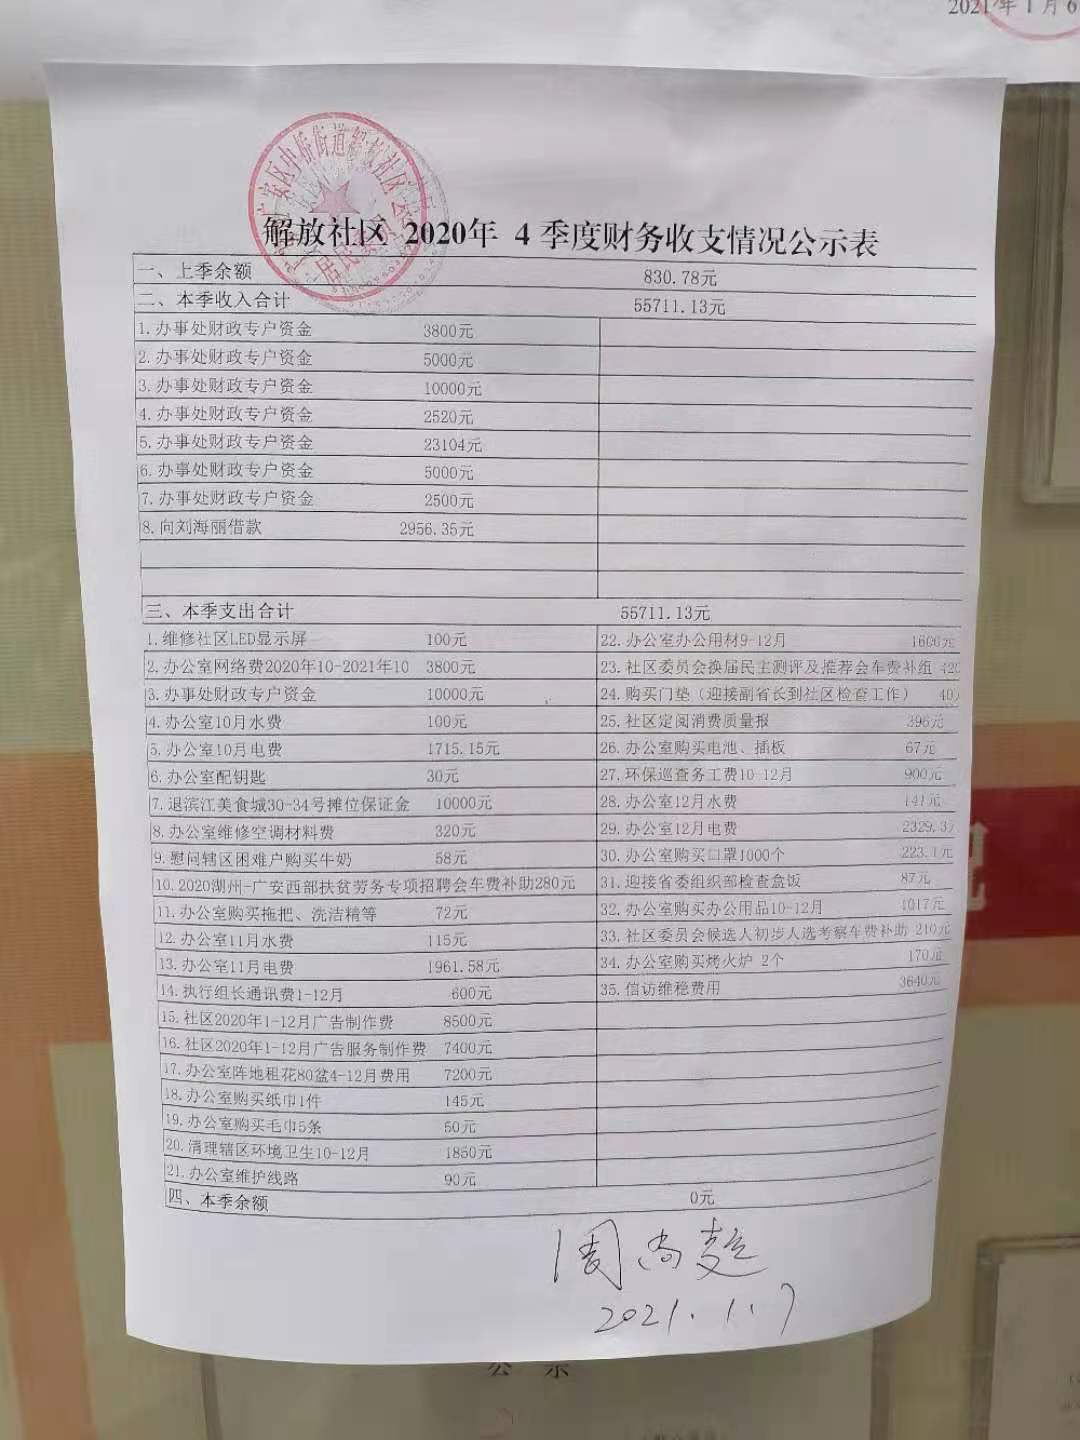 2021年1月6
解放社区 2020年 4季度财务收支情况公示表
一、上季余额 830.78元
二、本季收入合计 55711.13元
1.办事处财政专户资金 3800元
2.办事处财政专户资金 5000元
3.办事处财政专户资金 10000元
4.办事处财政专户资金 2520元
5.办事处财政专户资金 23104元
6.办事处财政专户资金 5000元
7.办事处财政专户资金 2500元
8.向刘海丽借款 2956.35元
三、本季支出合计 55711.13元
1.维修社区LED显示屏 100元 22.办公室办公用材9-12月 1600元
2.办公室网络费2020年10-2021年10 3800元 23.社区委员会换届民主测评及推荐会车费补组 420
3.办事处财政专户资金 10000元 24.购买门垫（迎接副省长到社区检查工作） 40
4.办公室10月水费 100元 25.社区定阅消费质量报 396元
5.办公室10月电费 1715.15元 26.办公室购买电池、插板 67元
6.办公室配钥匙 30元 27.环保巡查务工费10-12月 900元
7.退滨江美食城30-34号摊位保证金 10000元 28.办公室12月水费 141元
8.办公室维修空调材料费 320元 29.办公室12月电费 2329.3
9.慰问辖区困难户购买牛奶 58元 30.办公室购买口罩1000个 223.1元
10.2020湖州-广安西部扶贫劳务专项招聘会车费补助280元 31.迎接省委组织部检查盒饭 87元
11.办公室购买拖把、洗洁精等 72元 32.办公室购买办公用品10-12月 1017元
12.办公室11月水费 115元 33.社区委员会候选人初步人选考察车费补助 210元
13.办公室11月电费 1961.58元 34.办公室购买烤火炉 2个 170元
14.执行组长通讯费1-12月 600元 35.信访维稳费用 3640元
15.社区2020年1-12月广告制作费 8500元
16.社区2020年1-12月广告服务制作费 7400元
17.办公室阵地租花80盆4-12月费用 7200元
18.办公室购买纸巾1件 145元
19.办公室购买毛巾5条 50元
20.清理辖区环境卫生10-12月 1850元
21.办公室维护线路 90元
四、本季余额 0元
周尚
2021.1.7
公 示